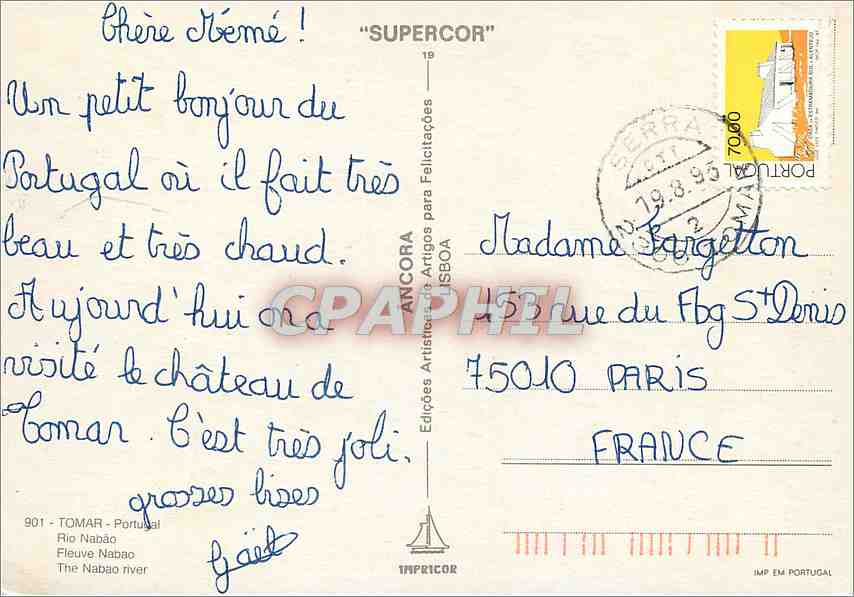 Chère Mémé !
Un petit bonjour du
Portugal où il fait très
beau et très chaud.
Aujourd'hui on a
visité le château de
Tomar. C'est très joli.
grosses bises
Gaël
901 - TOMAR - Portugal
Rio Nabão
Fleuve Nabao
The Nabao river
"SUPERCOR"
19
Edições Artísticas de Artigos para Felicitações
ÂNCORA
LISBOA
IMPRICOR
CPAPHIL
70.00
PORTUGAL
SERRA
19.8.93
TOMAR
Madame Fargetton
153 rue du Fbg St Denis
75010 PARIS
FRANCE
IMP EM PORTUGAL